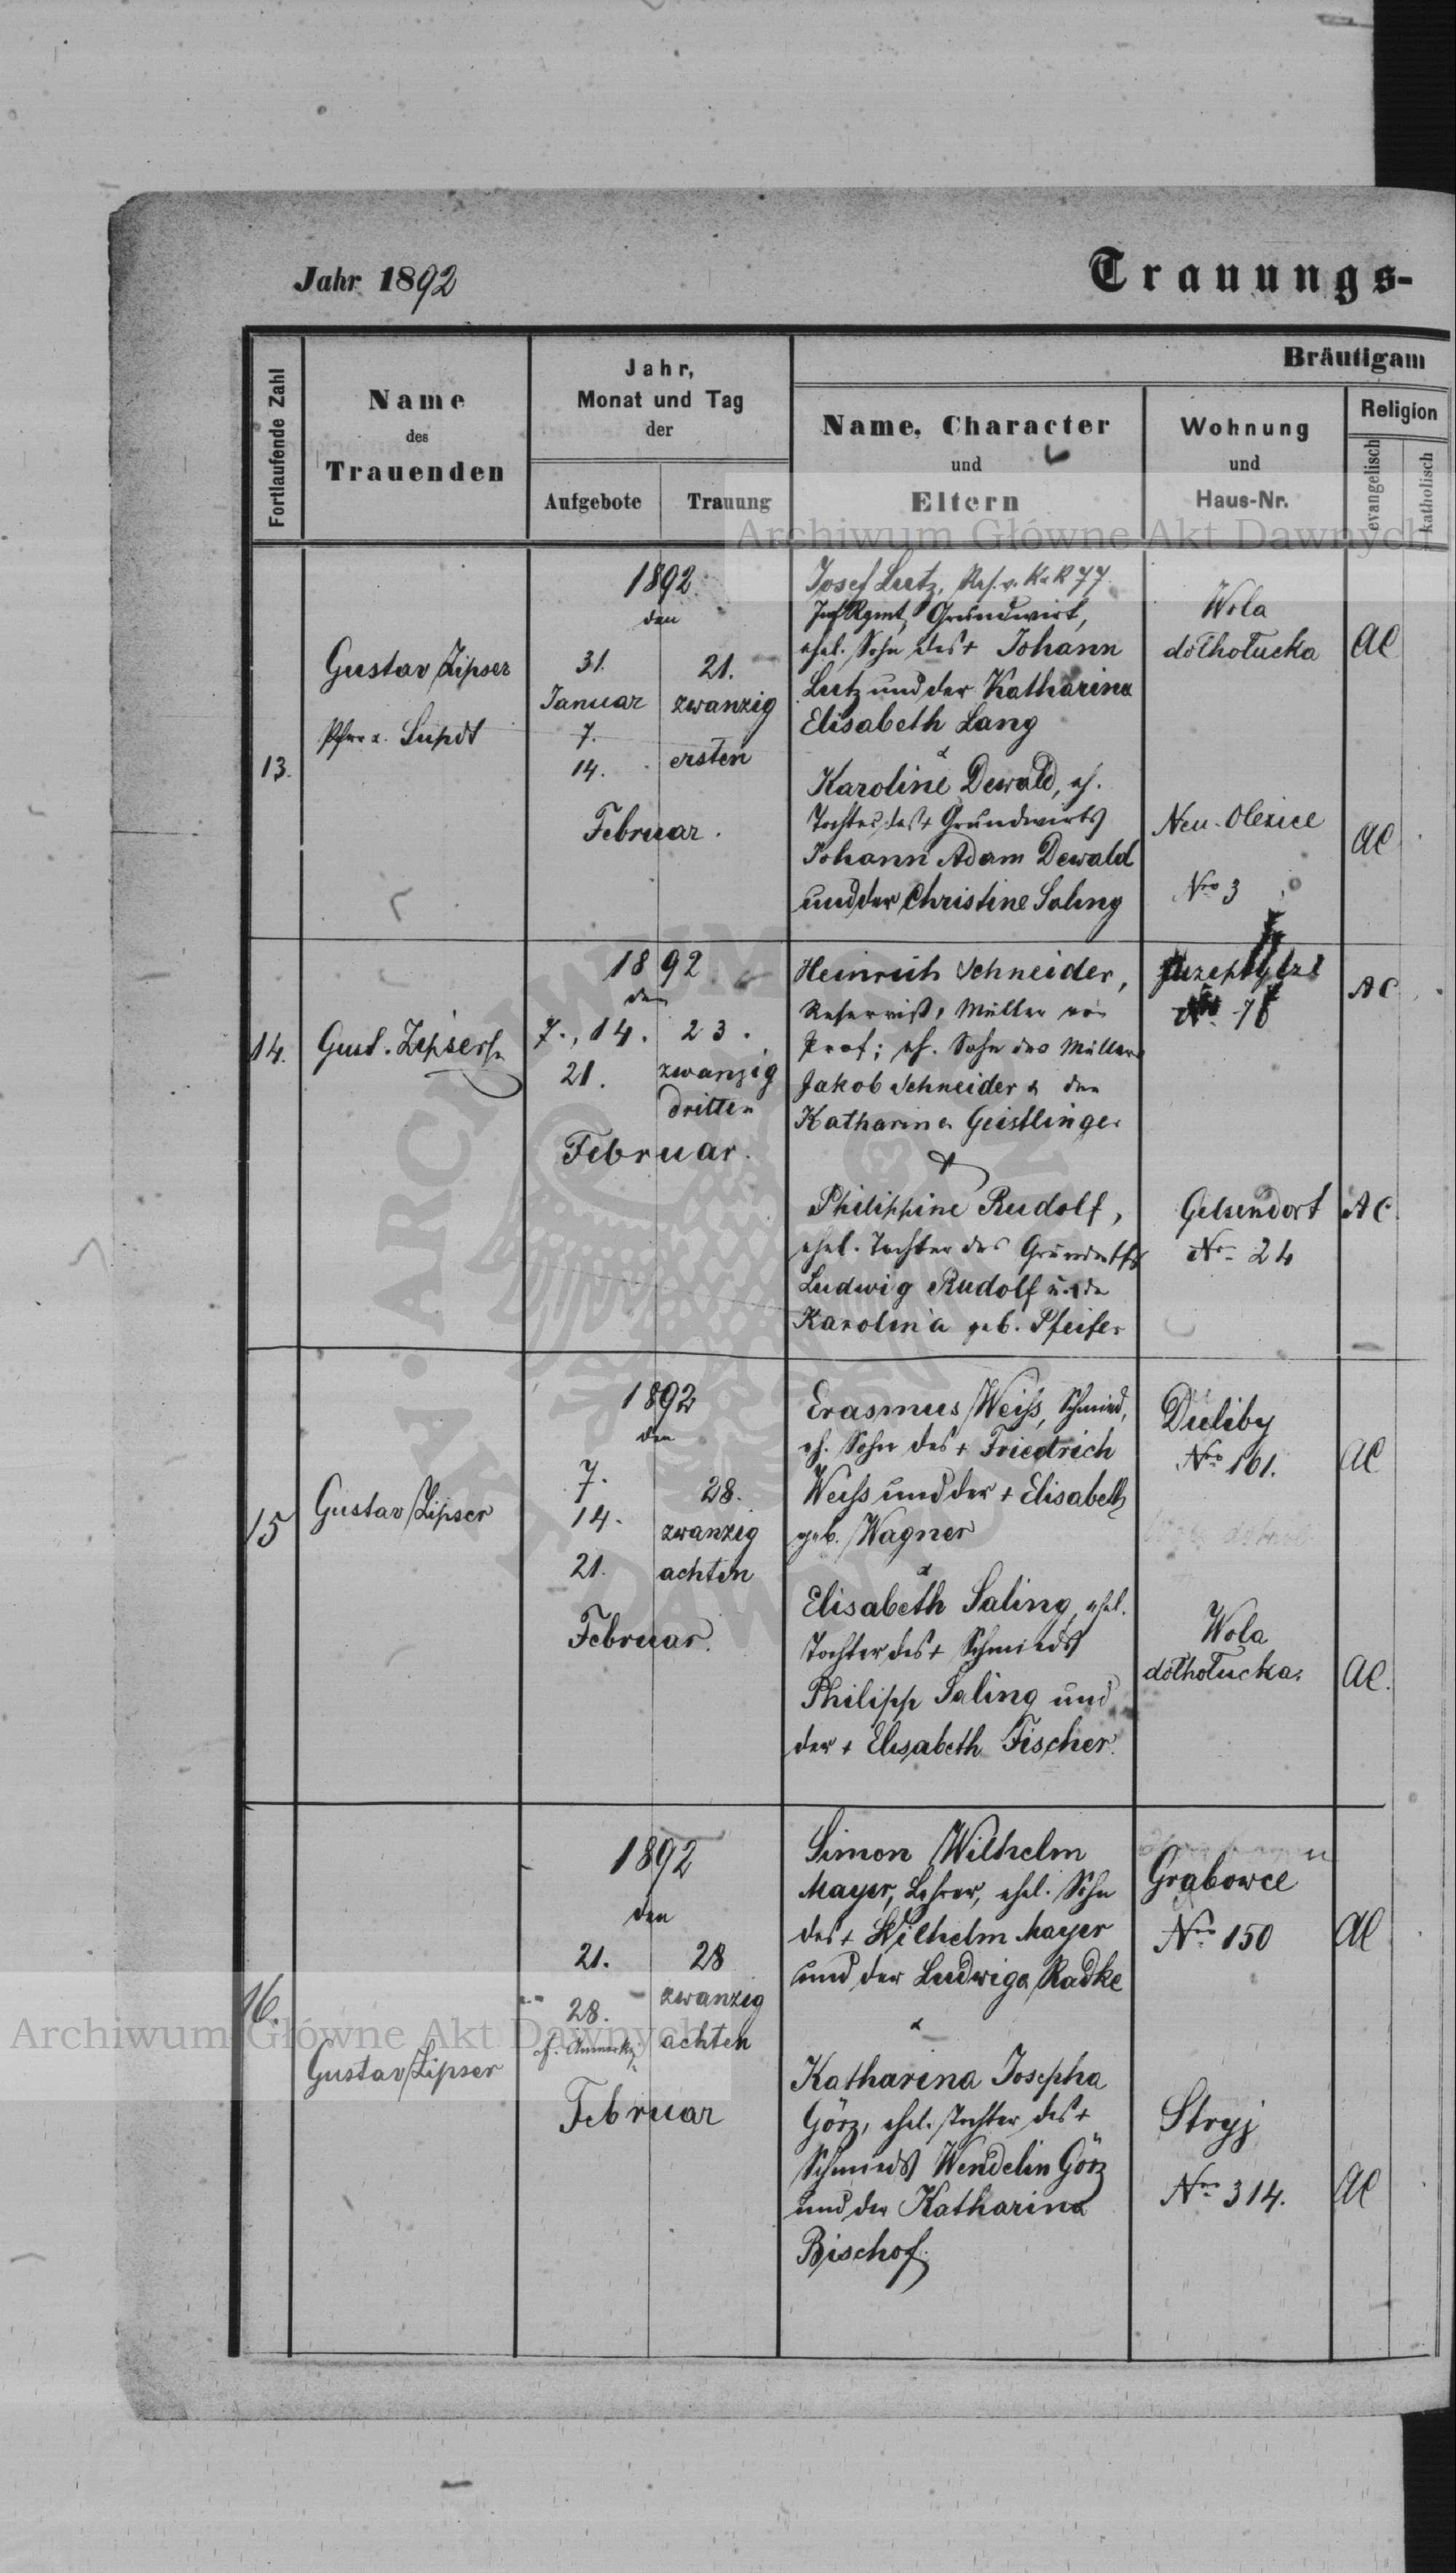 Jahr 1892
Trauungs-
Fortlaufende Zahl
Name
des
Trauenden
Jahr,
Monat und Tag
der
Aufgebote
Trauung
Bräutigam
Name, Character
und
Eltern
Wohnung
und
Haus-Nr.
Religion
evangelisch
katholisch
Archiwum Główne Akt Dawnych
13.
Gustav Zipser
1892
den
31.
Januar
7.
14.
Februar.
21.
zwanzig
ersten
Josef Lutz, Res. v. KuK 77
Inf Rgmt, Grundwirt,
ehel. Sohn des + Johann
Lutz und der Katharina
Elisabeth Lang
&
Karoline Dewald, eh.
Tochter des + Grundwirts
Johann Adam Dewald
und der Christine Saling
Wola
dołhołucka
Neu-Olexice
Nro 3
AC
AC
14.
Gust. Zipser
1892
den
7., 14.
21.
Februar.
23.
zwanzig
dritten
Heinrich Schneider,
Reservist, Müller von
Prof; eh. Sohn des Müllers
Jakob Schneider & der
Katharina Geistlinger
&
Philippine Rudolf,
ehel. Tochter des
Ludwig Rudolf u. der
Karolina geb. Pfeifer
Gelsendorf
No 24
AC
AC
15
Gustav Zipser
1892
den
7.
14.
21.
Februar.
28.
zwanzig
achten
Erasmus Weiss, Schmied,
eh. Sohn des + Friedrich
Weiss und der + Elisabeth
geb. Wagner
&
Elisabeth Saling, ehel.
Tochter des + Schmieds
Philipp Saling und
der + Elisabeth Fischer.
Duliby
Nro 161.
Wola
dołhołucka.
AC
AC.
16.
Gustav Zipser
1892
den
21.
28.
cf. Anmerkg.
Februar
28
zwanzig
achten
Simon Wilhelm
Mayer, Lehrer, ehel. Sohn
des + Wilhelm Mayer
und der Ludwiga Radke
&
Katharina Josepha
Görz, ehel. Tochter des +
Schmieds Wendelin Görz
und der Katharina
Bischof.
Grabowce
Nro 150
Stryj
Nro 314.
AC
AC
Archiwum Główne Akt Dawnych